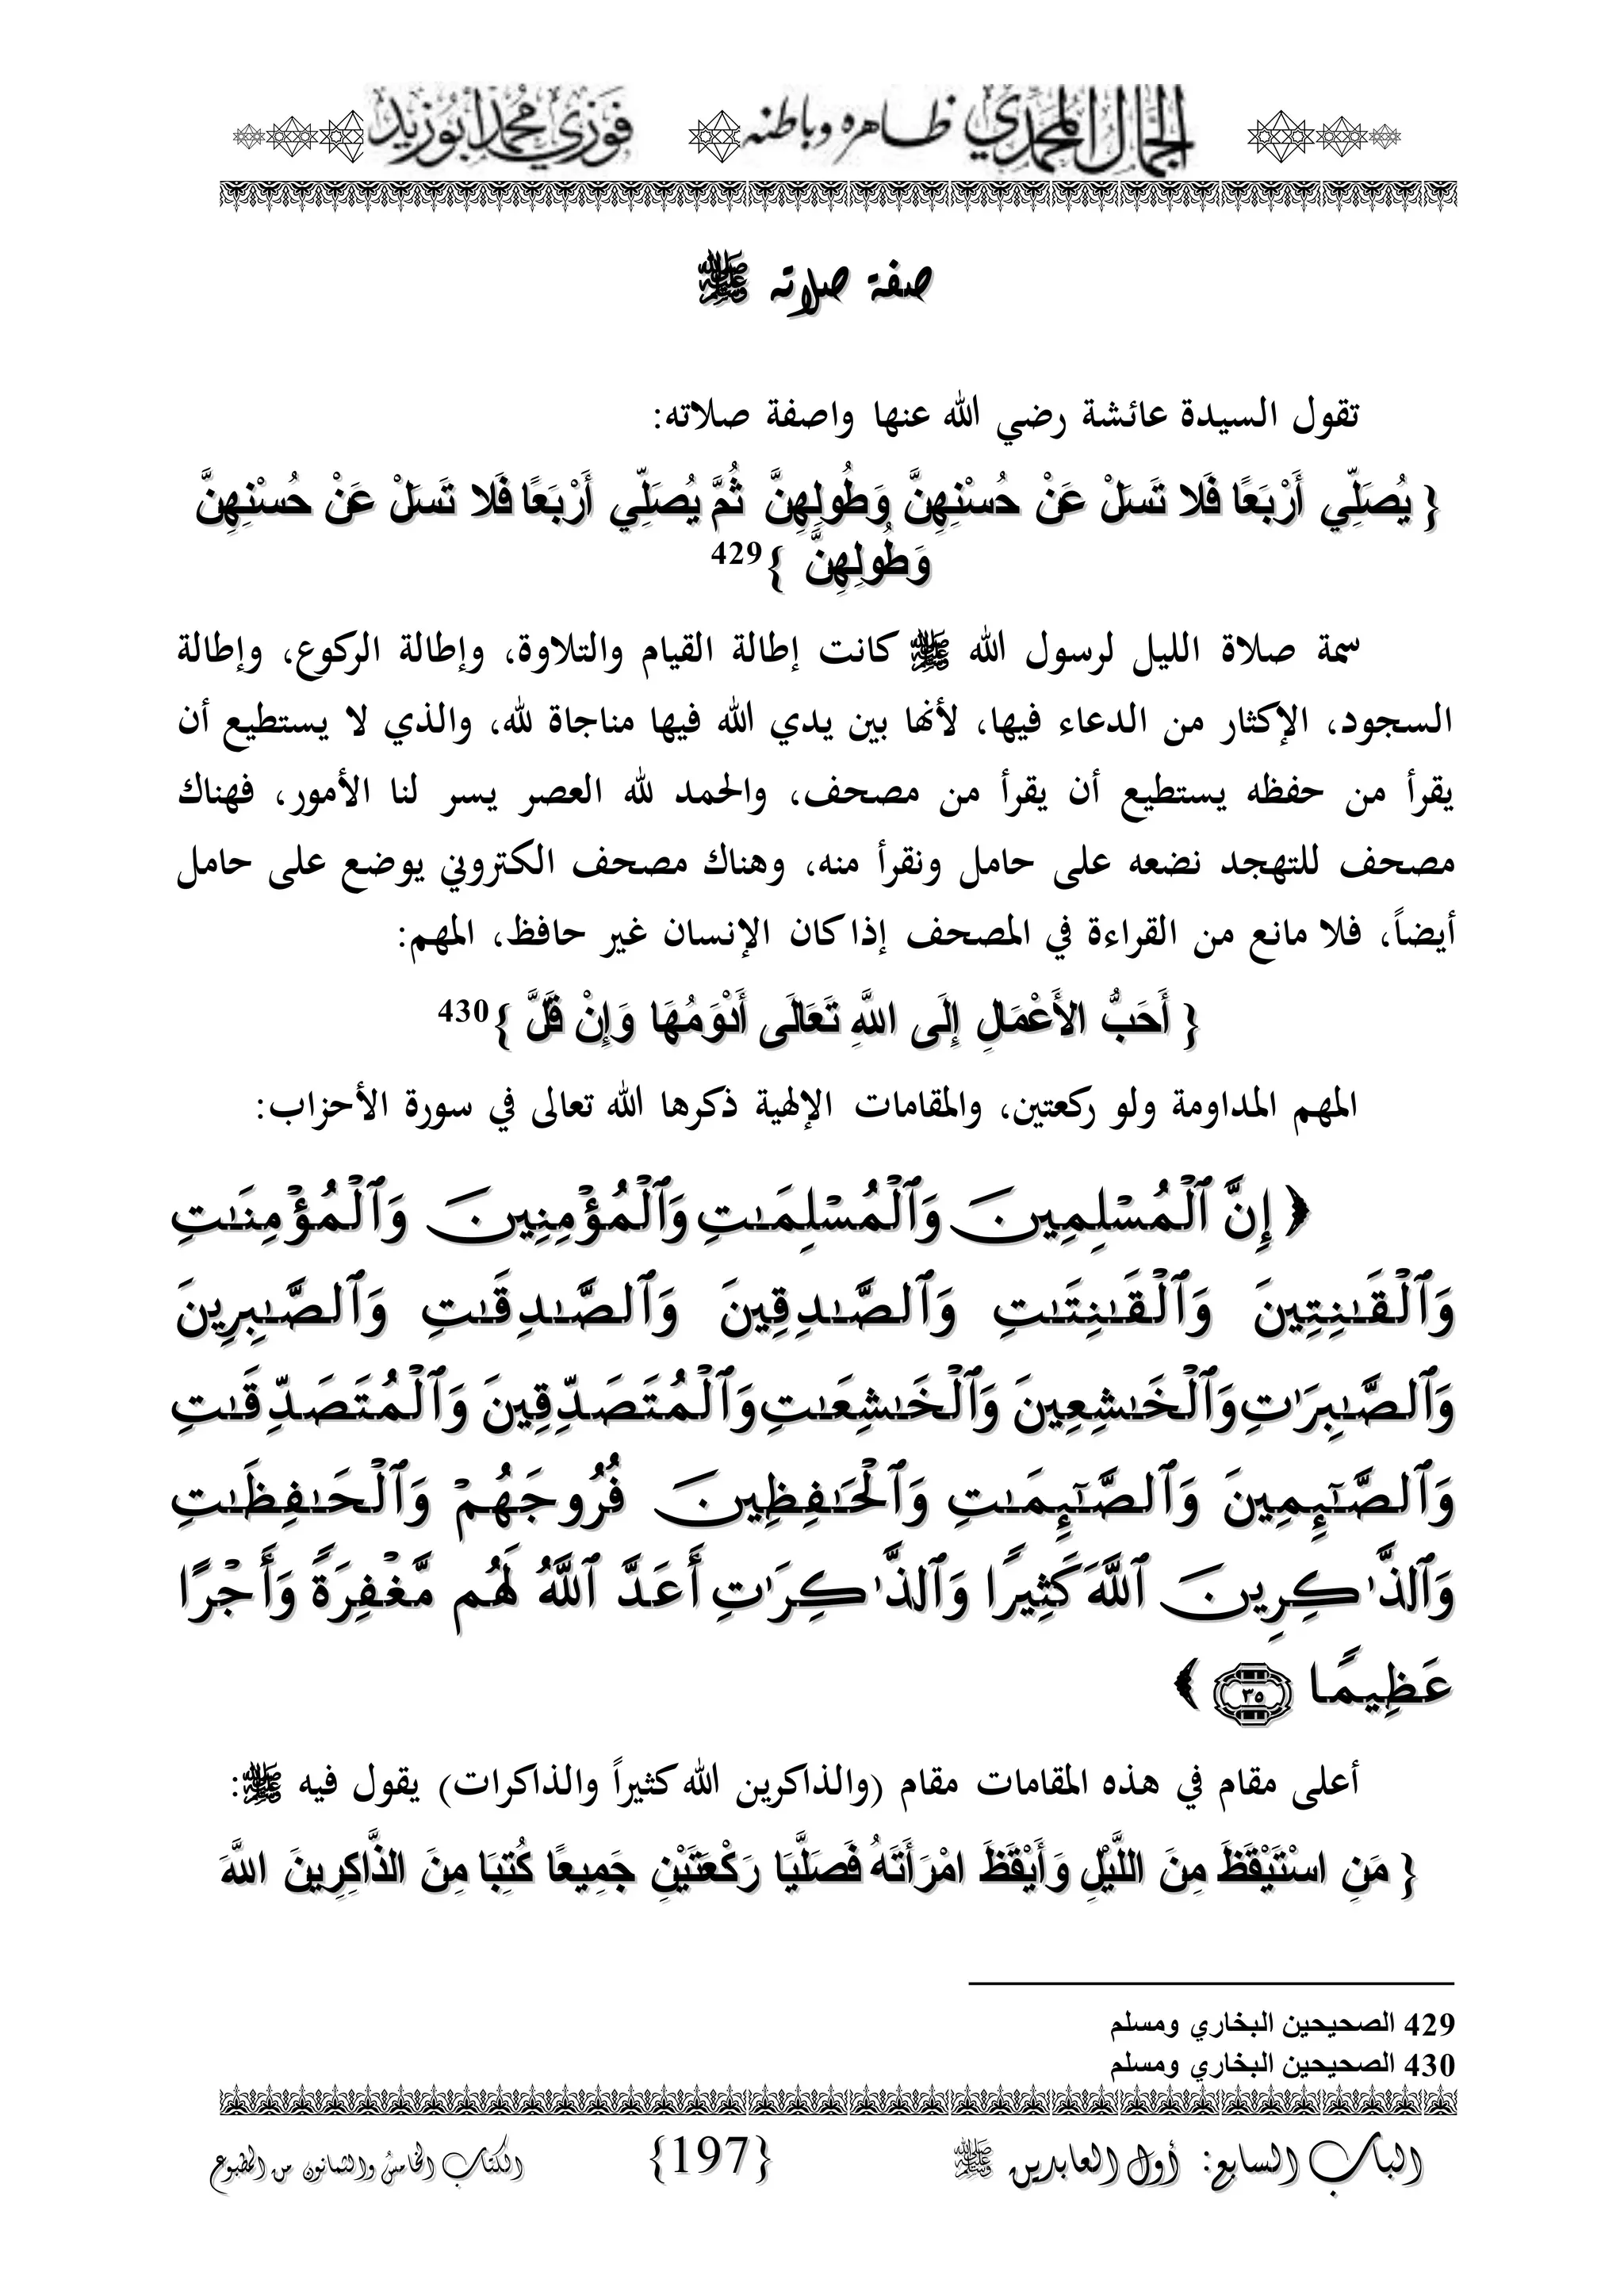 الجمال المحمدي ظاهره وباطنه فوزي محمد أبوزيد
صفة صلاته ﷺ
تقول السيدة عائشة رضي الله عنها واصفة صلاته:
{ يُصَلِّي أَرْبَعًا فَلا تَسَلْ عَنْ حُسْنِهِنَّ وَطُولِهِنَّ ثُمَّ يُصَلِّي أَرْبَعًا فَلا تَسَلْ عَنْ حُسْنِهِنَّ
وَطُولِهِنَّ }429
سمة صلاة الليل لرسول الله ﷺ كانت إطالة القيام والتلاوة، وإطالة الركوع، وإطالة
السجود، الإكثار من الدعاء فيها، لأنها بين يدي الله فيها مناجاة لله، والذي لا يستطيع أن
يقرأ من حفظه يستطيع أن يقرأ من مصحف، والحمد لله العصر يسر لنا الأمور، فهناك
مصحف للتهجد نضعه على حامل ونقرأ منه، وهناك مصحف الكتروني يوضع على حامل
أيضاً، فلا مانع من القراءة في المصحف إذا كان الإنسان غير حافظ، المهم:
{ أَحَبُّ الأَعْمَالِ إِلَى اللَّهِ تَعَالَى أَدْوَمُهَا وَإِنْ قَلَّ }430
المهم المداومة ولو ركعتين، والمقامات الإلهية ذكرها الله تعالى في سورة الأحزاب:
﴿ إِنَّ ٱلْمُسْلِمِينَ وَٱلْمُسْلِمَـٰتِ وَٱلْمُؤْمِنِينَ وَٱلْمُؤْمِنَـٰتِ
وَٱلْقَـٰنِتِينَ وَٱلْقَـٰنِتَـٰتِ وَٱلصَّـٰدِقِينَ وَٱلصَّـٰدِقَـٰتِ وَٱلصَّـٰبِرِينَ
وَٱلصَّـٰبِرَٰتِ وَٱلْخَـٰشِعِينَ وَٱلْخَـٰشِعَـٰتِ وَٱلْمُتَصَدِّقِينَ وَٱلْمُتَصَدِّقَـٰتِ
وَٱلصَّـٰٓئِمِينَ وَٱلصَّـٰٓئِمَـٰتِ وَٱلْحَـٰفِظِينَ فُرُوجَهُمْ وَٱلْحَـٰفِظَـٰتِ
وَٱلذَّٰكِرِينَ ٱللَّهَ كَثِيرًا وَٱلذَّٰكِرَٰتِ أَعَدَّ ٱللَّهُ لَهُم مَّغْفِرَةً وَأَجْرًا
عَظِيمًا ٣٥ ﴾
أعلى مقام في هذه المقامات مقام (والذاكرين الله كثيراً والذاكرات) يقول فيه ﷺ:
{ مَنِ اسْتَيْقَظَ مِنَ اللَّيْلِ وَأَيْقَظَ امْرَأَتَهُ فَصَلَّيَا رَكْعَتَيْنِ جَمِيعًا كُتِبَا مِنَ الذَّاكِرِينَ اللَّهَ
429 الصحيحين البخاري ومسلم
430 الصحيحين البخاري ومسلم
الباب السابع: أول العابدين ﷺ {197} الكتاب الخامس والثمانون من المطبوع